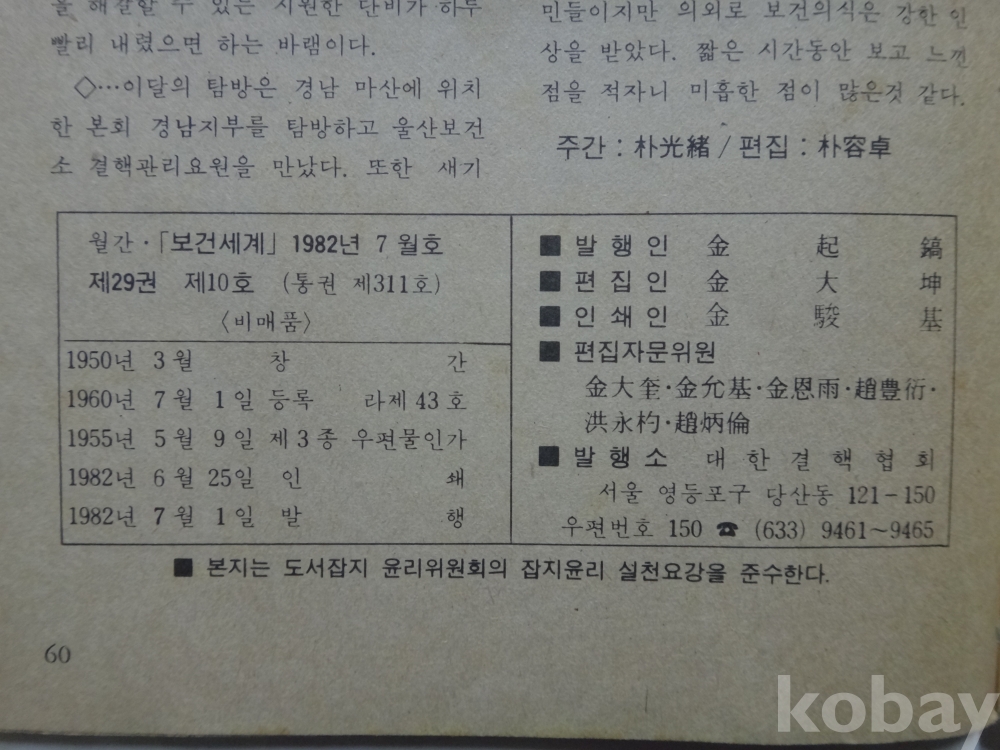 을 해갈할 수 있는 시원한 단비가 하루
빨리 내렸으면 하는 바램이다.
◇…이달의 탐방은 경남 마산에 위치
한 본회 경남지부를 탐방하고 울산보건
소 결핵관리요원을 만났다. 또한 새기
민들이지만 의외로 보건의식은 강한 인
상을 받았다. 짧은 시간동안 보고 느낀
점을 적자니 미흡한 점이 많은것 같다.
주간 : 朴光緖 / 편집 : 朴容卓
월간·「보건세계」 1982년 7월호
제29권 제10호 (통권 제311호)
〈비매품〉
1950년 3월 창 간
1960년 7월 1일 등록 라제 43호
1955년 5월 9일 제3종 우편물인가
1982년 6월 25일 인 쇄
1982년 7월 1일 발 행
■ 발행인 金 起 鎬
■ 편집인 金 大 坤
■ 인쇄인 金 駿 基
■ 편집자문위원
金大奎·金允基·金恩雨·趙豊衍·
洪永杓·趙炳倫
■ 발행소 대한결핵협회
서울 영등포구 당산동 121-150
우편번호 150 ☎ (633) 9461~9465
■ 본지는 도서잡지 윤리위원회의 잡지윤리 실천요강을 준수한다.
60
kobay